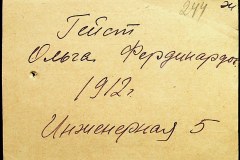 244
Гейст
Ольга Фердинандов
1912г.
Инженерная 5